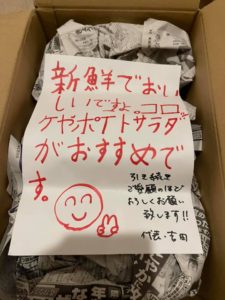 新鮮でおい
しいですよ。コロッ
ケやポテトサラダ
がおすすめで
す。
引き続き
ご愛顧のほど
よろしくお願い
致します!!
代表・吉田